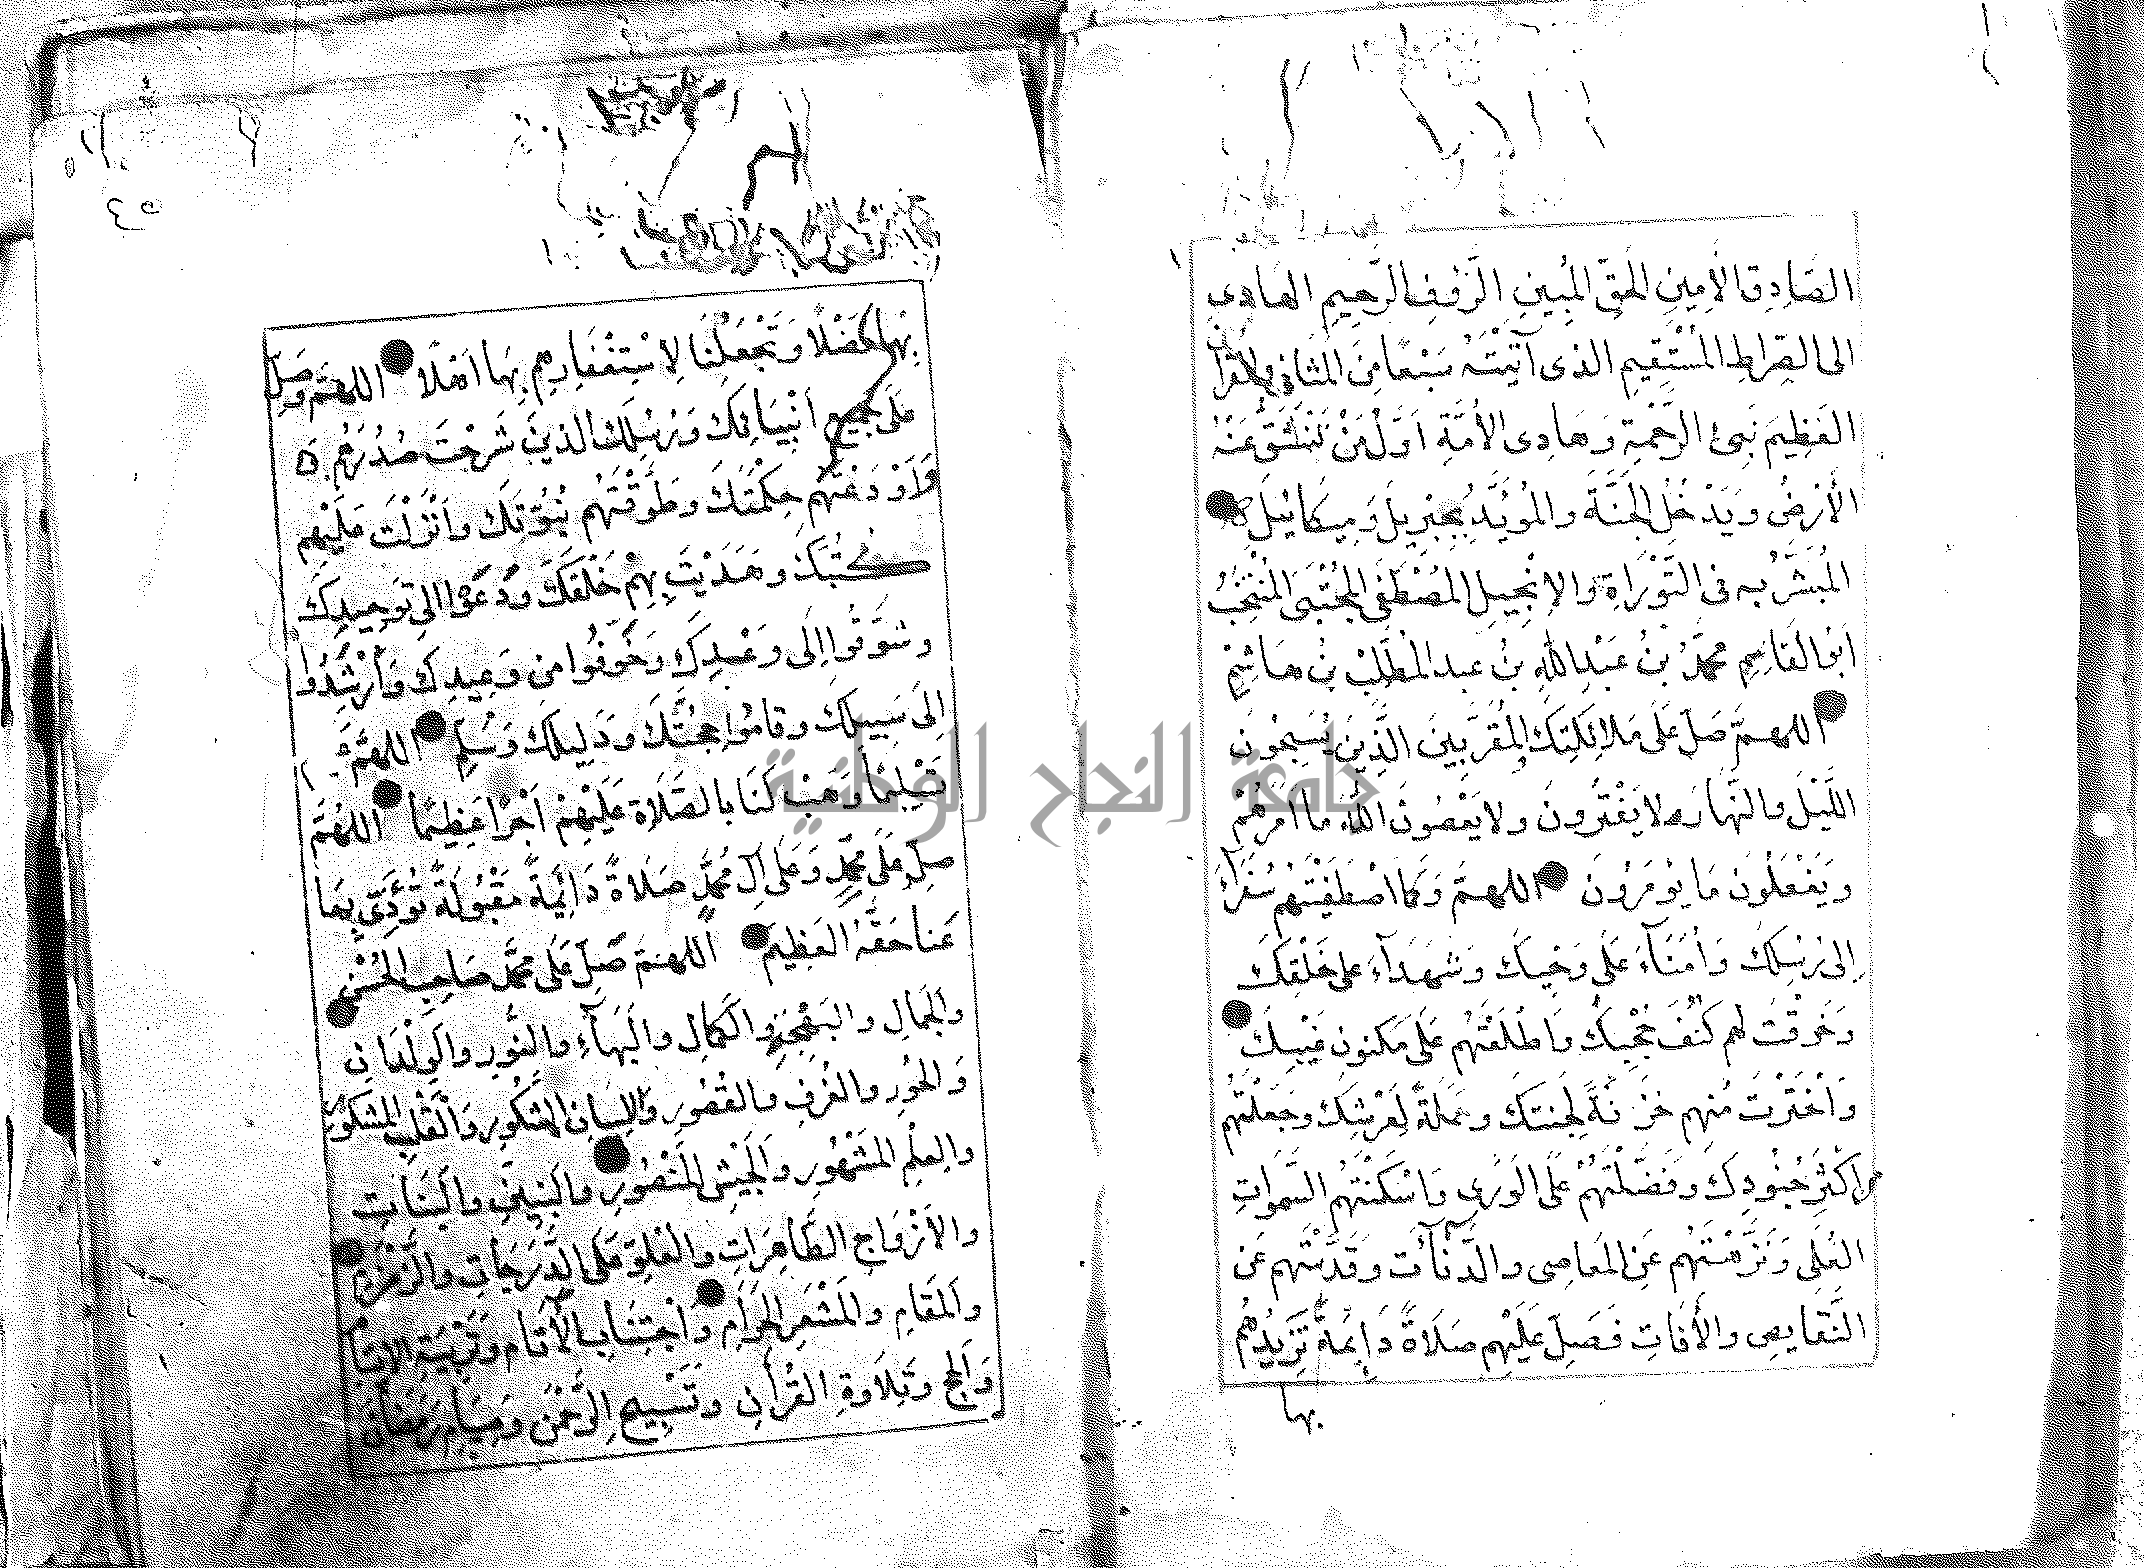 الصَّادِقِ الأَمِينِ الحَقِّ المُبِينِ الرَّؤُفِ الرَّحِيمِ الهَادِي
الى الصِّرَاطِ المُسْتَقِيمِ الذى آتَيْتَهُ سَبْعًا مِنَ المَثَانِي والقرآ
العَظِيمَ نَبِىِّ الرَّحْمَةِ وَهَادِى الأُمَّةِ أَوَّلُ مَنْ تَنْشَقُّ عَنْهُ
الأَرْضُ وَيَدْخُلُ الجَنَّةَ والمُؤَيَّدُ بِجِبْرِيلَ وَمِيكَائِيلَ
المُبَشَّرُ بِهِ فى التَّوْرَاةِ والإِنْجِيلِ المُصْطَفَى المُجْتَبَى المُنْتَخَبُ
أَبُو القَاسِمِ مُحَمَّدُ بْنُ عَبْدِ اللهِ بْنُ عبد المُطَّلِبْ بْن هَاشِمْ
اللهمَّ صَلِّ عَلَى مَلائِكَتِكَ المُقَرَّبِينَ الَّذِينَ يُسَبِّحُونَ
اللَّيْلَ والنَّهَارَ لا يَفْتُرُونَ ولا يَعْصُونَ اللهَ مَا أَمَرَهُمْ
وَيَفْعَلُونَ مَا يُؤْمَرُونَ اللهمَّ وَكَمَا اصْطَفَيْتَهُمْ سُفَرَاءَ
إلى رُسُلِكَ وَأُمَنَآءَ عَلَى وَحْيِكَ وَشُهَدَآءَ على خَلْقِكَ
وَخَرَقْتَ لهم كُنُفَ حُجُبِكَ وَأَطْلَعْتَهُمْ عَلَى مَكْنُونِ غَيْبِكَ
وَاخْتَرْتَ مِنْهُم خَزَنَةً لِجَنَّتِكَ وَحَمَلَةً لِعَرْشِكَ وَجَعَلْتَهُم
مِن أَكْثَرِ جُنُودِكَ وَفَضَّلْتَهُمْ عَلَى الوَرَى وَأَسْكَنْتَهُم السَّمَوَاتِ
العُلَى وَنَزَّهْتَهُم عَنِ المَعَاصِى والدَّنَآئَاتِ وَقَدَّسْتَهُم عَنِ
النَّقَايِصِ والآفَاتِ فَصَلِّ عَلَيْهِم صَلَاةً دَائِمَةً تَزِيدُهُم
بها
٤٥
بِهَا فَضْلًا وَتَجْعَلْنَا لِاسْتِغْفَارِهِم بِهَا أَهْلًا اللهمَّ وَصَلِّ
عَلَى جَمِيعِ أَنْبِيَائِكَ وَرُسُلِكَ الذِينَ شَرَحْتَ صُدُرَهُم
وَأَوْدَعْتَهُم حِكْمَتَكَ وَطَوَّقْتَهُم نُبُوَّتَكَ وَأَنْزَلْتَ عَلَيْهِم
كُتُبَكَ وَهَدَيْتَ بِهِمْ خَلْقَكَ وَدَعَوْا إلى تَوْحِيدِكَ
وشَوَّقُوا إِلَى وَعْدِكَ وَخَوَّفُوا مِن وَعِيدِكَ وَأَرْشَدُوا
إِلَى سَبِيلِكَ وقَامُوا بِحُجَّتِكَ وَدَلِيلِكَ وَسَلِّمِ اللهمَّ
تَسْلِيمًا وَهَبْ لَنَا بالصَّلَاةِ عَلَيْهِمْ أَجْرًا عَظِيمًا اللهُمَّ
صلِّ عَلَى مُحَمَّدٍ وَعَلَى آلِ مُحَمَّدٍ صَلَاةً دَائِمَةً مَقْبُولَةً تُؤَدِّى بِهَا
عَنا حَقَّهُ العَظِيمَ اللهمَّ صَلِّ عَلَى مُحَمَّدٍ صَاحِبِ الحُسْنِ
والجَمَالِ والبَهْجَةِ والكَمَالِ والبَهَآءِ والنُّورِ والوِلْدَانِ
وَالحُورِ والغُرَفِ والقُصُورِ واللِّسَانِ الشَّكُورِ وَالْقَلْبِ المَشْكُورِ
والعِلْمِ المَشْهُورِ والجَيْشِ المَنْصُورِ والبَنِينَ والبَنَاتِ
والأَزْوَاجِ الطَّاهِرَاتِ والعُلُوِّ عَلَى الدَّرَجَاتِ والزَّمْزَمِ
والمَقَامِ والمَشْعَرِ الحَرَامِ وَاجْتِنَابِ الآثَامِ وَتَرْبِيَةِ الأَيْتَامِ
وَالحَجِّ وَتِلَاوَةِ القُرْآنِ وَتَسْبِيحِ الرَّحْمَنِ وَصِيَامِ رَمَضَانَ
جامعة النجاح الوطنية